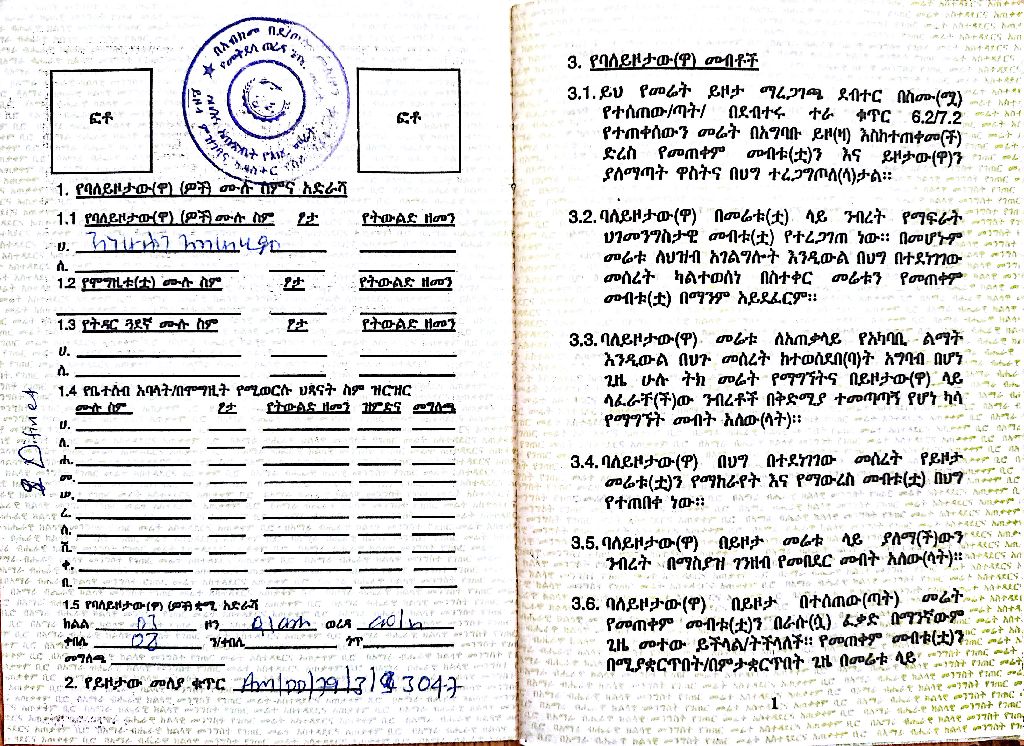 ፎቶ
ፎቶ
1. የባለይዞታው(ዋ) (ዎች) ሙሉ ስምና አድራሻ
1.1 የባለይዞታው(ዋ) (ዎች) ሙሉ ስም ፆታ የትውልድ ዘመን
ሀ.
ለ.
1.2 የሞግዚቱ(ቷ) ሙሉ ስም ፆታ የትውልድ ዘመን
1.3 የትዳር ጓደኛ ሙሉ ስም ፆታ የትውልድ ዘመን
ሀ.
ለ.
1.4 የቤተሰብ አባላት/በሞግዚት የሚወርሱ ህጻናት ስም ዝርዝር
ሙሉ ስም ፆታ የትውልድ ዘመን ዝምድና መግለጫ
ሀ.
ለ.
ሐ.
መ.
ሠ.
ረ.
ሰ.
ሸ.
ቀ.
በ.
1.5 የባለይዞታው(ዋ) (ዎች) ቋሚ አድራሻ
ክልል 03 ዞን ወረዳ
ቀበሌ 03 ን/ቀበሌ ጎጥ
መግለጫ
2. የይዞታው መለያ ቁጥር Am/DD/29/3/ 3047
3. የባለይዞታው(ዋ) መብቶች
3.1. ይህ የመሬት ይዞታ ማረጋገጫ ደብተር በስሙ(ሟ)
የተሰጠው/ጣት/ በደብተሩ ተራ ቁጥር 6.2/7.2
የተጠቀሰውን መሬት በአግባቡ ይዞ(ዛ) እስከተጠቀመ(ች)
ድረስ የመጠቀም መብቱ(ቷ)ን እና ይዞታው(ዋ)ን
ያለማጣት ዋስትና በህግ ተረጋግጦለ(ላ)ታል።
3.2. ባለይዞታው(ዋ) በመሬቱ(ቷ) ላይ ንብረት የማፍራት
ህገመንግስታዊ መብቱ(ቷ) የተረጋገጠ ነው። በመሆኑም
መሬቱ ለህዝብ አገልግሎት እንዲውል በህግ በተደነገገው
መሰረት ካልተወሰነ በስተቀር መሬቱን የመጠቀም
መብቱ(ቷ) በማንም አይደፈርም።
3.3. ባለይዞታው(ዋ) መሬቱ ለአጠቃላይ የአካባቢ ልማት
እንዲውል በህጉ መሰረት ከተወሰደበ(ባ)ት አግባብ በሆነ
ጊዜ ሁሉ ትክ መሬት የማግኘትና በይዞታው(ዋ) ላይ
ላፈራቸ(ች)ው ንብረቶች በቅድሚያ ተመጣጣኝ የሆነ ካሳ
የማግኘት መብት አለው(ላት)።
3.4. ባለይዞታው(ዋ) በህግ በተደነገገው መሰረት የይዞታ
መሬቱ(ቷ)ን የማከራየት እና የማውረስ መብቱ(ቷ) በህግ
የተጠበቀ ነው።
3.5. ባለይዞታው(ዋ) በይዞታ መሬቱ ላይ ያለማ(ች)ውን
ንብረት በማስያዝ ገንዘብ የመበደር መብት አለው(ላት)።
3.6. ባለይዞታው(ዋ) በይዞታ በተሰጠው(ጣት) መሬት
የመጠቀም መብቱ(ቷ)ን በራሱ(ሷ) ፈቃድ በማንኛውም
ጊዜ መተው ይችላል/ትችላለች። የመጠቀም መብቱ(ቷ)ን
በሚያቋርጥበት/በምታቋርጥበት ጊዜ በመሬቱ ላይ
1